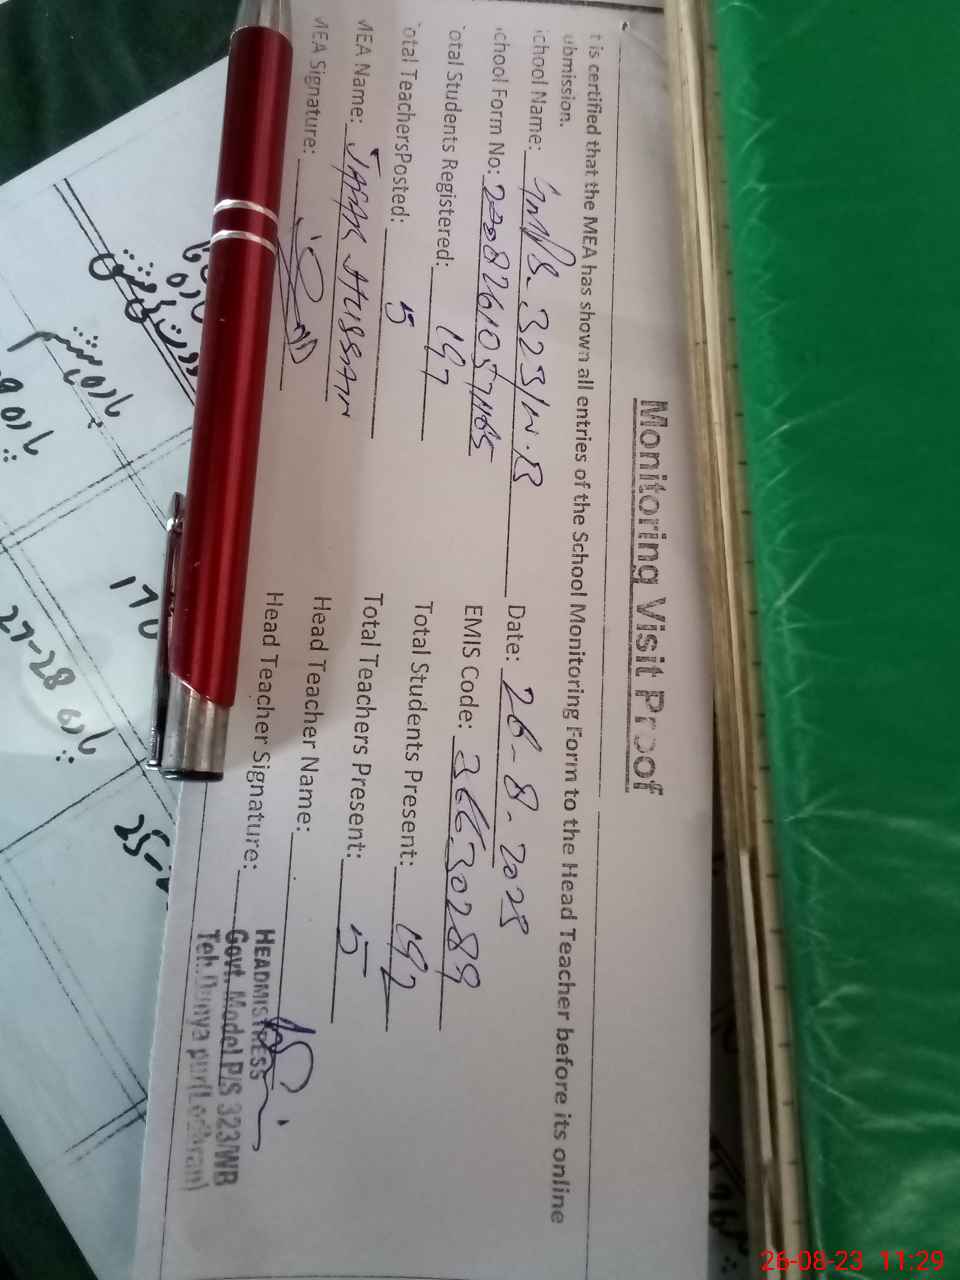 Monitoring Visit Proof
t is certified that the MEA has shown all entries of the School Monitoring Form to the Head Teacher before its online
ubmission.
chool Name: GMPS- 323/W.B Date: 26-8-2023
chool Form No: EMIS Code: 36630289
otal Students Registered: 197 Total Students Present: 192
otal TeachersPosted: 5 Total Teachers Present: 5
MEA Name: JAFAR HUSSAIN Head Teacher Name:
MEA Signature: Head Teacher Signature:
HEADMISTRESS
Govt. Model P/S 323/WB
Teh.Dunya pur(Lodhran)
پارہ ششم
27-28 پارہ
26-08-23 11:29